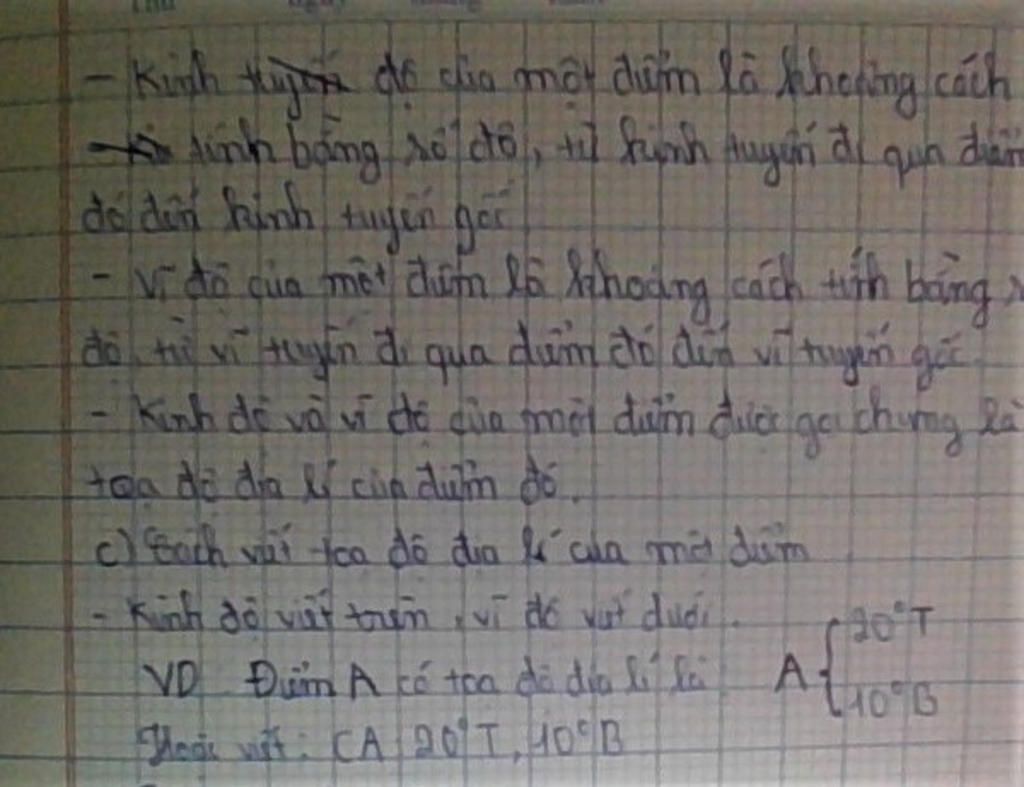 - Kinh tuyến độ của một điểm là khoảng cách
tính bằng số độ, từ kinh tuyến đi qua điểm
đó đến kinh tuyến gốc
- Vĩ độ của một điểm là khoảng cách tính bằng s
độ, từ vĩ tuyến đi qua điểm đó đến vĩ tuyến gốc.
- Kinh độ và vĩ độ của một điểm được gọi chung là
tọa độ địa lí của điểm đó.
c) Cách viết tọa độ địa lí của một điểm
- Kinh độ viết trên, vĩ độ viết dưới.
VD Điểm A có tọa độ địa lí là A { 20°T
10°B
Hoặc viết: (A 20°T, 10°B